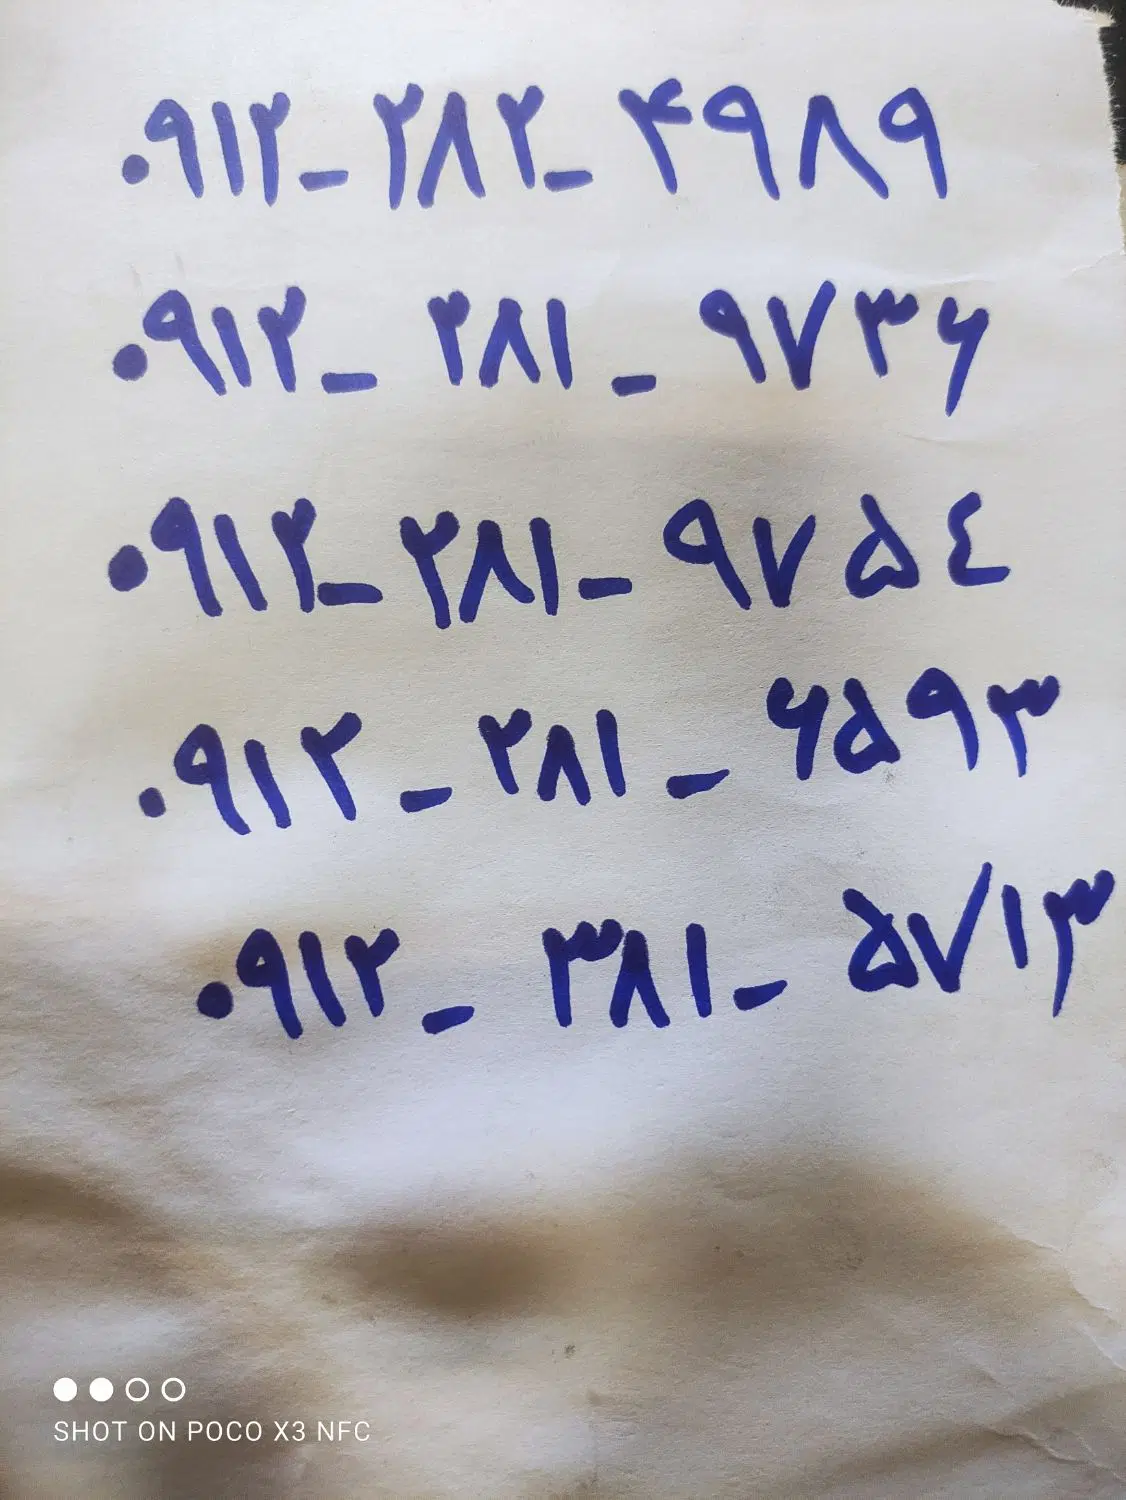 ۰۹۱۲_۲۸۲_۴۹۸۹
۰۹۱۲_۲۸۱_۹۷۳۶
۰۹۱۲_۲۸۱_۹۷۵٤
۰۹۱۲_۲۸۱_۶۵۹۳
۰۹۱۲_۳۸۱_۵۷۱۳
SHOT ON POCO X3 NFC